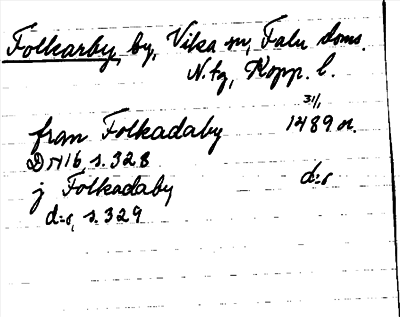 Folkarby, by, Vika sn, Falu doms.
N. tg, Kopp. l.
31/1
fran Folkadaby 1489 o.
DN 16, s. 328
j Folkadaby d:o
d:o, s. 329